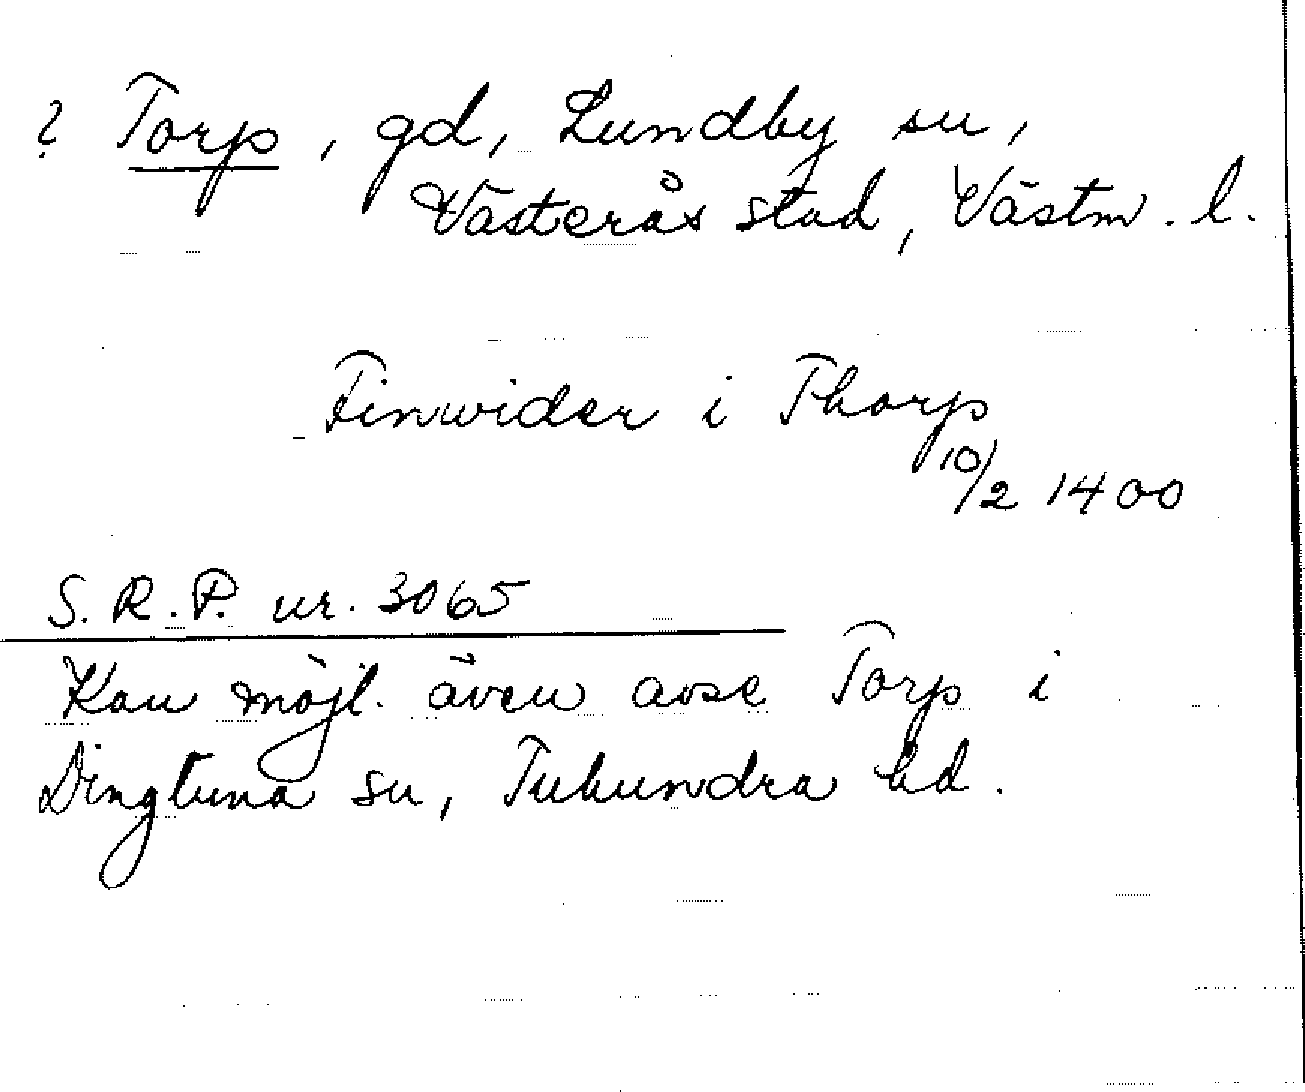 ? Torp, gd, Lundby sn,
Västerås stad, Västm. l.
Finwider i Thorp
10/2 1400
S. R. P. nr. 3065
Kan möjl. även avse Torp i
Dingtuna sn, Tuhundra hd.